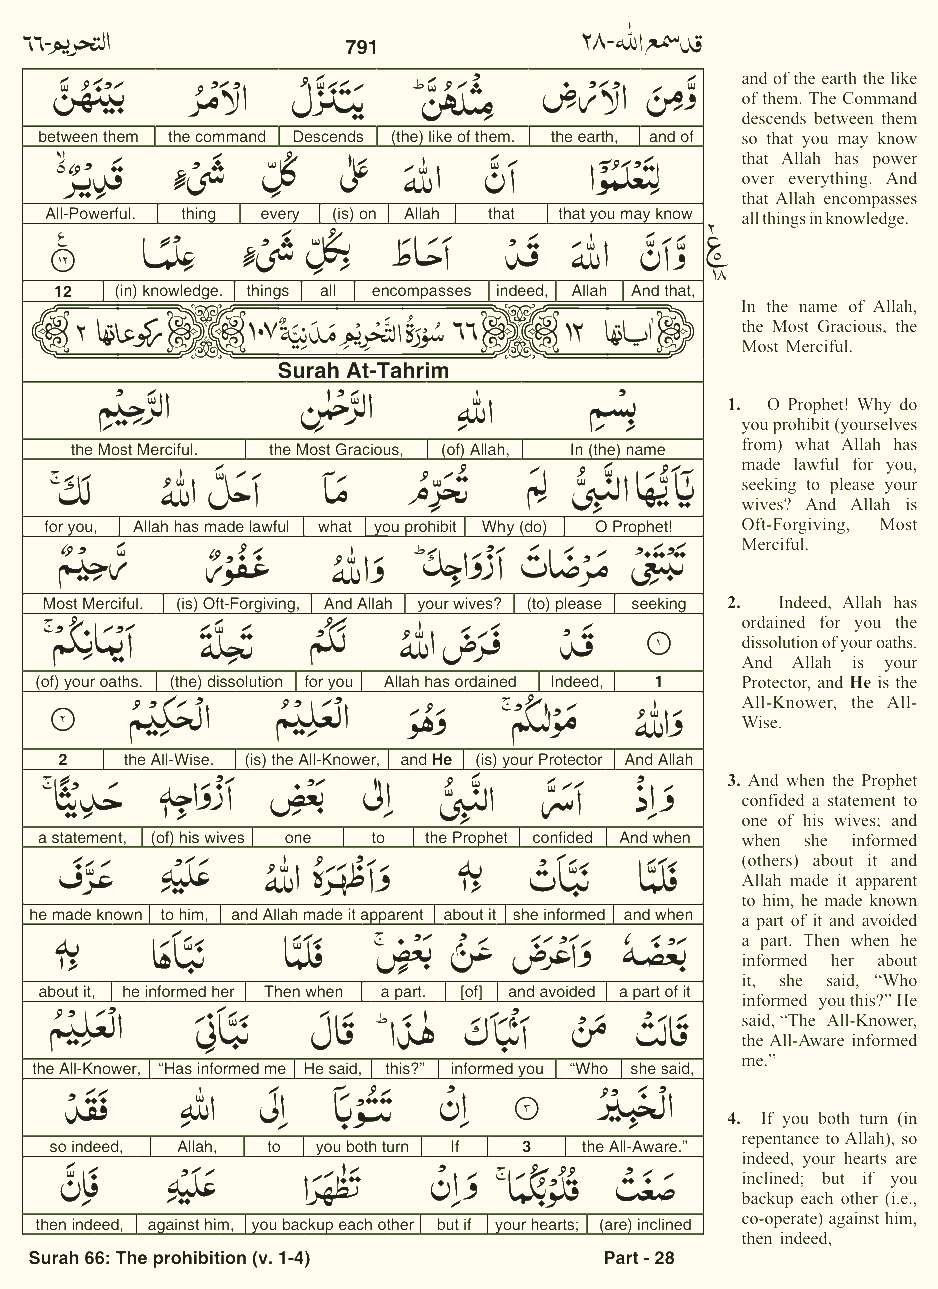 التحريم-٦٦ 791 قد سمع الله-٢٨
وَّمِنَ الْاَرْضِ مِثْلَهُنَّ ؕ يَتَنَزَّلُ الْاَمْرُ بَيْنَهُنَّ
between them the command Descends (the) like of them. the earth, and of
لِتَعْلَمُوْۤا اَنَّ اللّٰهَ عَلٰى كُلِّ شَىْءٍ قَدِيْرٌ ۙ
All-Powerful. thing every (is) on Allah that that you may know
وَّاَنَّ اللّٰهَ قَدْ اَحَاطَ بِكُلِّ شَىْءٍ عِلْمًا ١٢ ع
12 (in) knowledge. things all encompasses indeed, Allah And that,
٢ ع ٥ ١٨
اٰيَاتُهَا ١٢ ٦٦ سُوْرَةُ التَّحْرِيْمِ مَدَنِيَّةٌ ١٠٧ رُكُوْعَاتُهَا ٢
Surah At-Tahrim
بِسْمِ اللّٰهِ الرَّحْمٰنِ الرَّحِيْمِ
the Most Merciful. the Most Gracious, (of) Allah, In (the) name
يٰۤاَيُّهَا النَّبِىُّ لِمَ تُحَرِّمُ مَاۤ اَحَلَّ اللّٰهُ لَكَ ۚ
for you, Allah has made lawful what you prohibit Why (do) O Prophet!
تَبْتَغِىْ مَرْضَاتَ اَزْوَاجِكَ ؕ وَاللّٰهُ غَفُوْرٌ رَّحِيْمٌ
Most Merciful. (is) Oft-Forgiving, And Allah your wives? (to) please seeking
١ قَدْ فَرَضَ اللّٰهُ لَكُمْ تَحِلَّةَ اَيْمَانِكُمْ ۚ
(of) your oaths. (the) dissolution for you Allah has ordained Indeed, 1
وَاللّٰهُ مَوْلٰىكُمْ ۚ وَهُوَ الْعَلِيْمُ الْحَكِيْمُ ٢
2 the All-Wise. (is) the All-Knower, and He (is) your Protector And Allah
وَاِذْ اَسَرَّ النَّبِىُّ اِلٰى بَعْضِ اَزْوَاجِهٖ حَدِيْثًا ۚ
a statement, (of) his wives one to the Prophet confided And when
فَلَمَّا نَبَّاَتْ بِهٖ وَاَظْهَرَهُ اللّٰهُ عَلَيْهِ عَرَّفَ
he made known to him, and Allah made it apparent about it she informed and when
بَعْضَهٗ وَاَعْرَضَ عَنْۢ بَعْضٍ ۚ فَلَمَّا نَبَّاَهَا بِهٖ
about it, he informed her Then when a part. [of] and avoided a part of it
قَالَتْ مَنْ اَنْۢبَاَكَ هٰذَا ؕ قَالَ نَبَّاَنِىَ الْعَلِيْمُ
the All-Knower, “Has informed me He said, this?” informed you “Who she said,
الْخَبِيْرُ ٣ اِنْ تَتُوْبَاۤ اِلَى اللّٰهِ فَقَدْ
so indeed, Allah, to you both turn If 3 the All-Aware.”
صَغَتْ قُلُوْبُكُمَا ۚ وَاِنْ تَظٰهَرَا عَلَيْهِ فَاِنَّ
then indeed, against him, you backup each other but if your hearts; (are) inclined
Surah 66: The prohibition (v. 1-4) Part - 28
and of the earth the like
of them. The Command
descends between them
so that you may know
that Allah has power
over everything. And
that Allah encompasses
all things in knowledge.
In the name of Allah,
the Most Gracious, the
Most Merciful.
1. O Prophet! Why do
you prohibit (yourselves
from) what Allah has
made lawful for you,
seeking to please your
wives? And Allah is
Oft-Forgiving, Most
Merciful.
2. Indeed, Allah has
ordained for you the
dissolution of your oaths.
And Allah is your
Protector, and He is the
All-Knower, the All-
Wise.
3. And when the Prophet
confided a statement to
one of his wives; and
when she informed
(others) about it and
Allah made it apparent
to him, he made known
a part of it and avoided
a part. Then when he
informed her about
it, she said, “Who
informed you this?” He
said, “The All-Knower,
the All-Aware informed
me.”
4. If you both turn (in
repentance to Allah), so
indeed, your hearts are
inclined; but if you
backup each other (i.e.,
co-operate) against him,
then indeed,